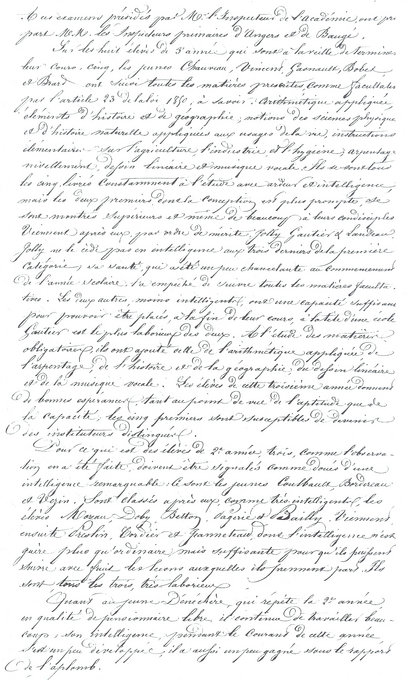 Aux examens présidés par M. l'Inspecteur de l'Académie, ont pris
part M.M. les Inspecteurs primaires d'Angers et de Baugé.
Sur les huit élèves de 3e année qui sont à la veille de terminer
leur cours, cinq, les jeunes Chauveau, Vincent, Gasnault, Bobet
et Brard ont suivi toutes les matières prescrites, comme facultatives
par l'article 23 de la loi 1850, à savoir : Arithmétique appliquée,
éléments d'histoire et de géographie, notions des sciences physiques
et d'histoire naturelle appliquées aux usages de la vie, instructions
élémentaires sur l'agriculture, l'industrie et l'hygiène, arpentage
nivellement, dessin linéaire et musique vocale. Ils se sont tous
les cinq livrés constamment à l'étude avec ardeur et intelligence
mais les deux premiers dont la conception est plus prompte, se
sont montrés supérieurs et même de beaucoup à leurs condisciples
Viennent après eux, par ordre de mérite, Jolly, Gautier & Landeau
Jolly ne le cède pas en intelligence aux trois derniers de la première
catégorie, sa santé, qui a été un peu chancelante au commencement
de l'année scolaire, l'a empêché de suivre toutes les matières faculta-
tives. Les deux autres, moins intelligents, ont une capacité suffisante
pour pouvoir être placés, à la fin de leur cours, à la tête d'une école
Gautier est le plus laborieux des deux. A l'étude des matières
obligatoires, ils ont ajouté celle de l'arithmétique appliquée, de
l'arpentage, de l'histoire et de la géographie, du dessin linéaire
et de la musique vocale. Les élèves de cette troisième année donnent
de bonnes espérances, tant au point de vue de l'aptitude que de
la capacité, les cinq premiers sont susceptibles de devenir
des instituteurs distingués.
Pour ce qui est des élèves de 2e année, trois, comme l'observa-
tion en a été faite, doivent être signalés comme doués d'une
intelligence remarquable. Ce sont les jeunes Coulbault, Bordereau
et Vezin. Sont classés après eux, comme très intelligents, les
élèves Moreau, Doby, Betton, et Bailly. Viennent
ensuite Crespin, Cordier et Jeanneteau, dont l'intelligence n'est
guère plus qu'ordinaire, mais suffisante pour qu'ils puissent
suivre avec fruit les leçons auxquelles ils prennent part. Ils
sont tous les trois, très laborieux.
Quant au jeune Dénéchère, qui répète la 2e année
en qualité de pensionnaire libre, il continue de travailler beau-
coup ; son intelligence, pendant le courant de cette année
s'est un peu développée ; il a aussi un peu gagné sous le rapport
de l'aplomb.